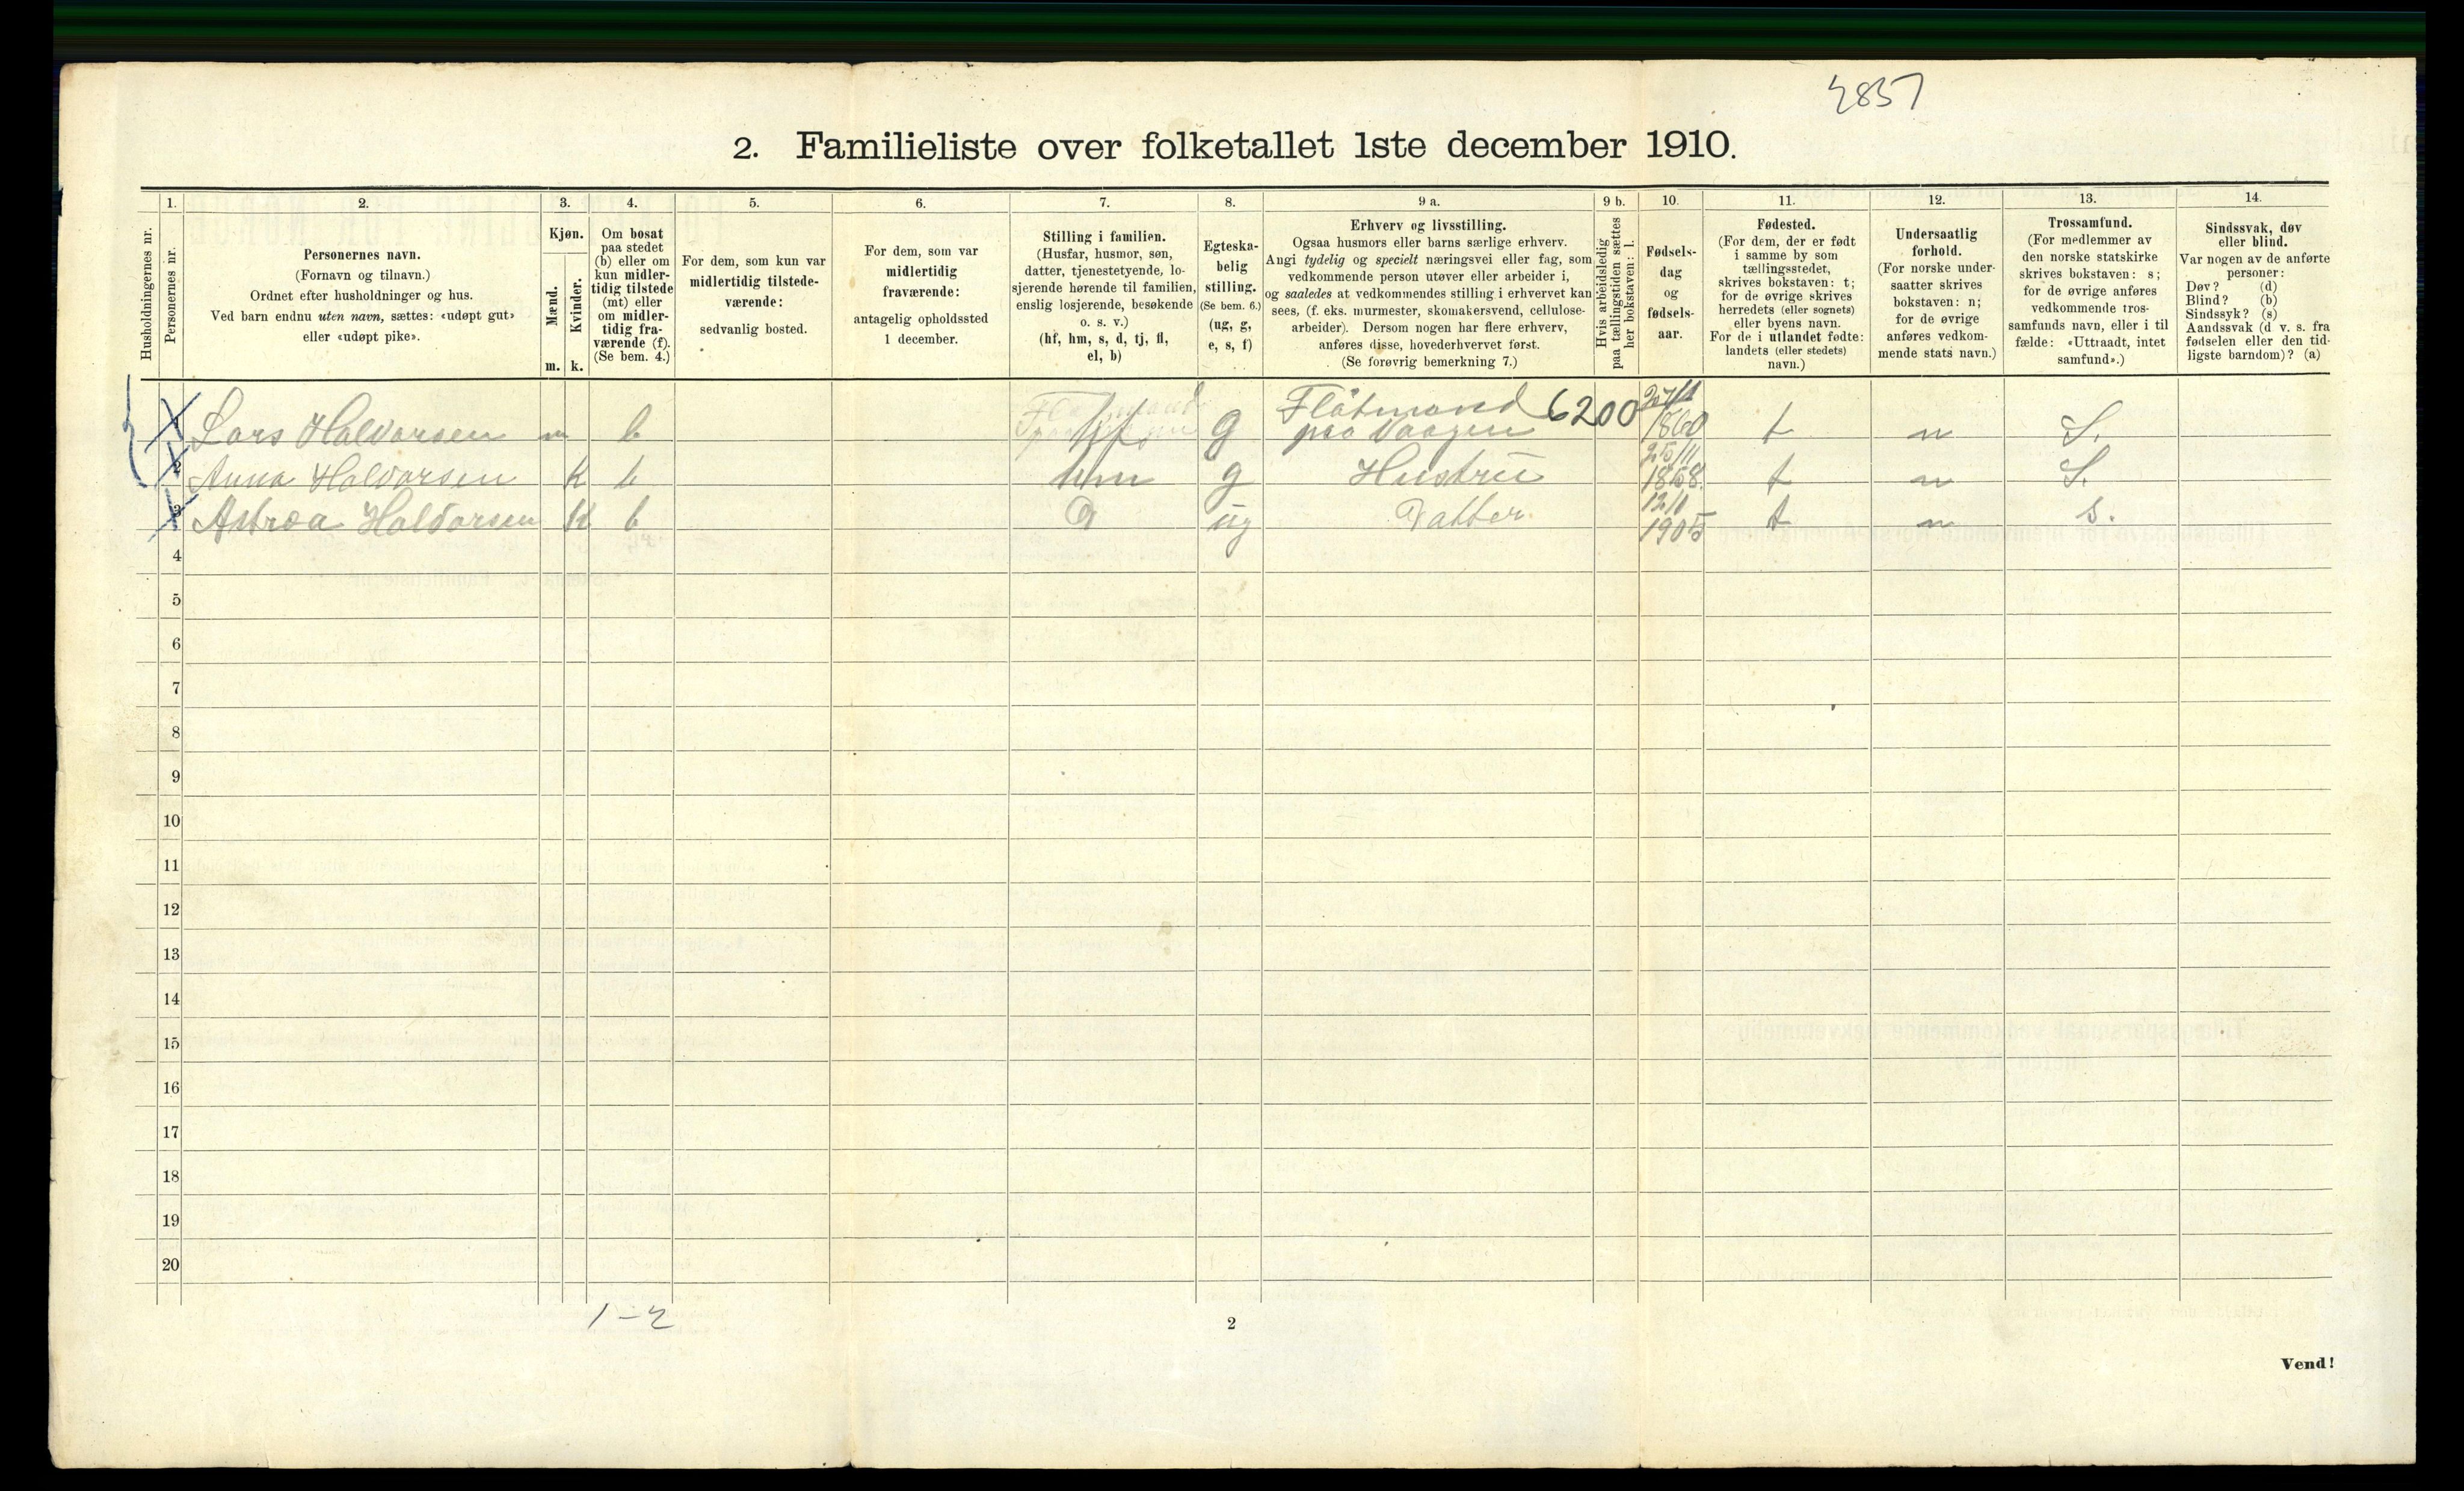 2857
2. Familieliste over folketallet 1ste december 1910.
1. 2. 3. 4. 5. 6. 7. 8. 9 a. 9 b. 10. 11. 12. 13. 14.
Husholdningernes nr.
Personernes nr.
Personernes navn.
(Fornavn og tilnavn.)
Ordnet efter husholdninger og hus.
Ved barn endnu uten navn, sættes: «udøpt gut»
eller «udøpt pike».
Kjøn.
Mænd.
Kvinder.
m. k.
Om bosat
paa stedet
(b) eller om
kun midler-
tidig tilstede
(mt) eller
om midler-
tidig fra-
værende (f).
(Se bem. 4.)
For dem, som kun var
midlertidig tilstede-
værende:
sedvanlig bosted.
For dem, som var
midlertidig
fraværende:
antagelig opholdssted
1 december.
Stilling i familien.
(Husfar, husmor, søn,
datter, tjenestetyende, lo-
sjerende hørende til familien,
enslig losjerende, besøkende
o. s. v.)
(hf, hm, s, d, tj, fl,
el, b)
Egteska-
belig
stilling.
(Se bem. 6.)
(ug, g,
e, s, f)
Erhverv og livsstilling.
Ogsaa husmors eller barns særlige erhverv.
Angi tydelig og specielt næringsvei eller fag, som
vedkommende person utøver eller arbeider i,
og saaledes at vedkommendes stilling i erhvervet kan
sees, (f. eks. murmester, skomakersvend, cellulose-
arbeider). Dersom nogen har flere erhverv,
anføres disse, hovederhvervet først.
(Se forøvrig bemerkning 7.)
Hvis arbeidsledig
paa tællingstiden sættes
her bokstaven: l.
Fødsels-
dag
og
fødsels-
aar.
Fødested.
(For dem, der er født
i samme by som
tællingsstedet,
skrives bokstaven: t;
for de øvrige skrives
herredets (eller sognets)
eller byens navn.
For de i utlandet fødte:
landets (eller stedets)
navn.)
Undersaatlig
forhold.
(For norske under-
saatter skrives
bokstaven: n;
for de øvrige
anføres vedkom-
mende stats navn.)
Trossamfund.
(For medlemmer av
den norske statskirke
skrives bokstaven: s;
for de øvrige anføres
vedkommende tros-
samfunds navn, eller i til
fælde: «Uttraadt, intet
samfund».)
Sindssvak, døv
eller blind.
Var nogen av de anførte
personer:
Døv? (d)
Blind? (b)
Sindssyk? (s)
Aandssvak (d v. s. fra
fødselen eller den tid-
ligste barndom)? (a)
1 Lars Halvorsen m b hf g Flåtmand paa Vaagen 6200 1860 t n S.
2 Anna Halvorsen K b hm g Hustrü 25/11 1868. t n S.
3 Astrea Haldorsen K b D üg Datter. 1905 t n s.
4
5
6
7
8
9
10
11
12
13
14
15
16
17
18
19
20
1-2
2
Vend!